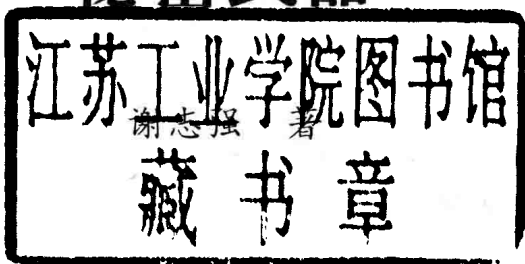 江苏工业学院图书馆
谢志强 著
藏书章